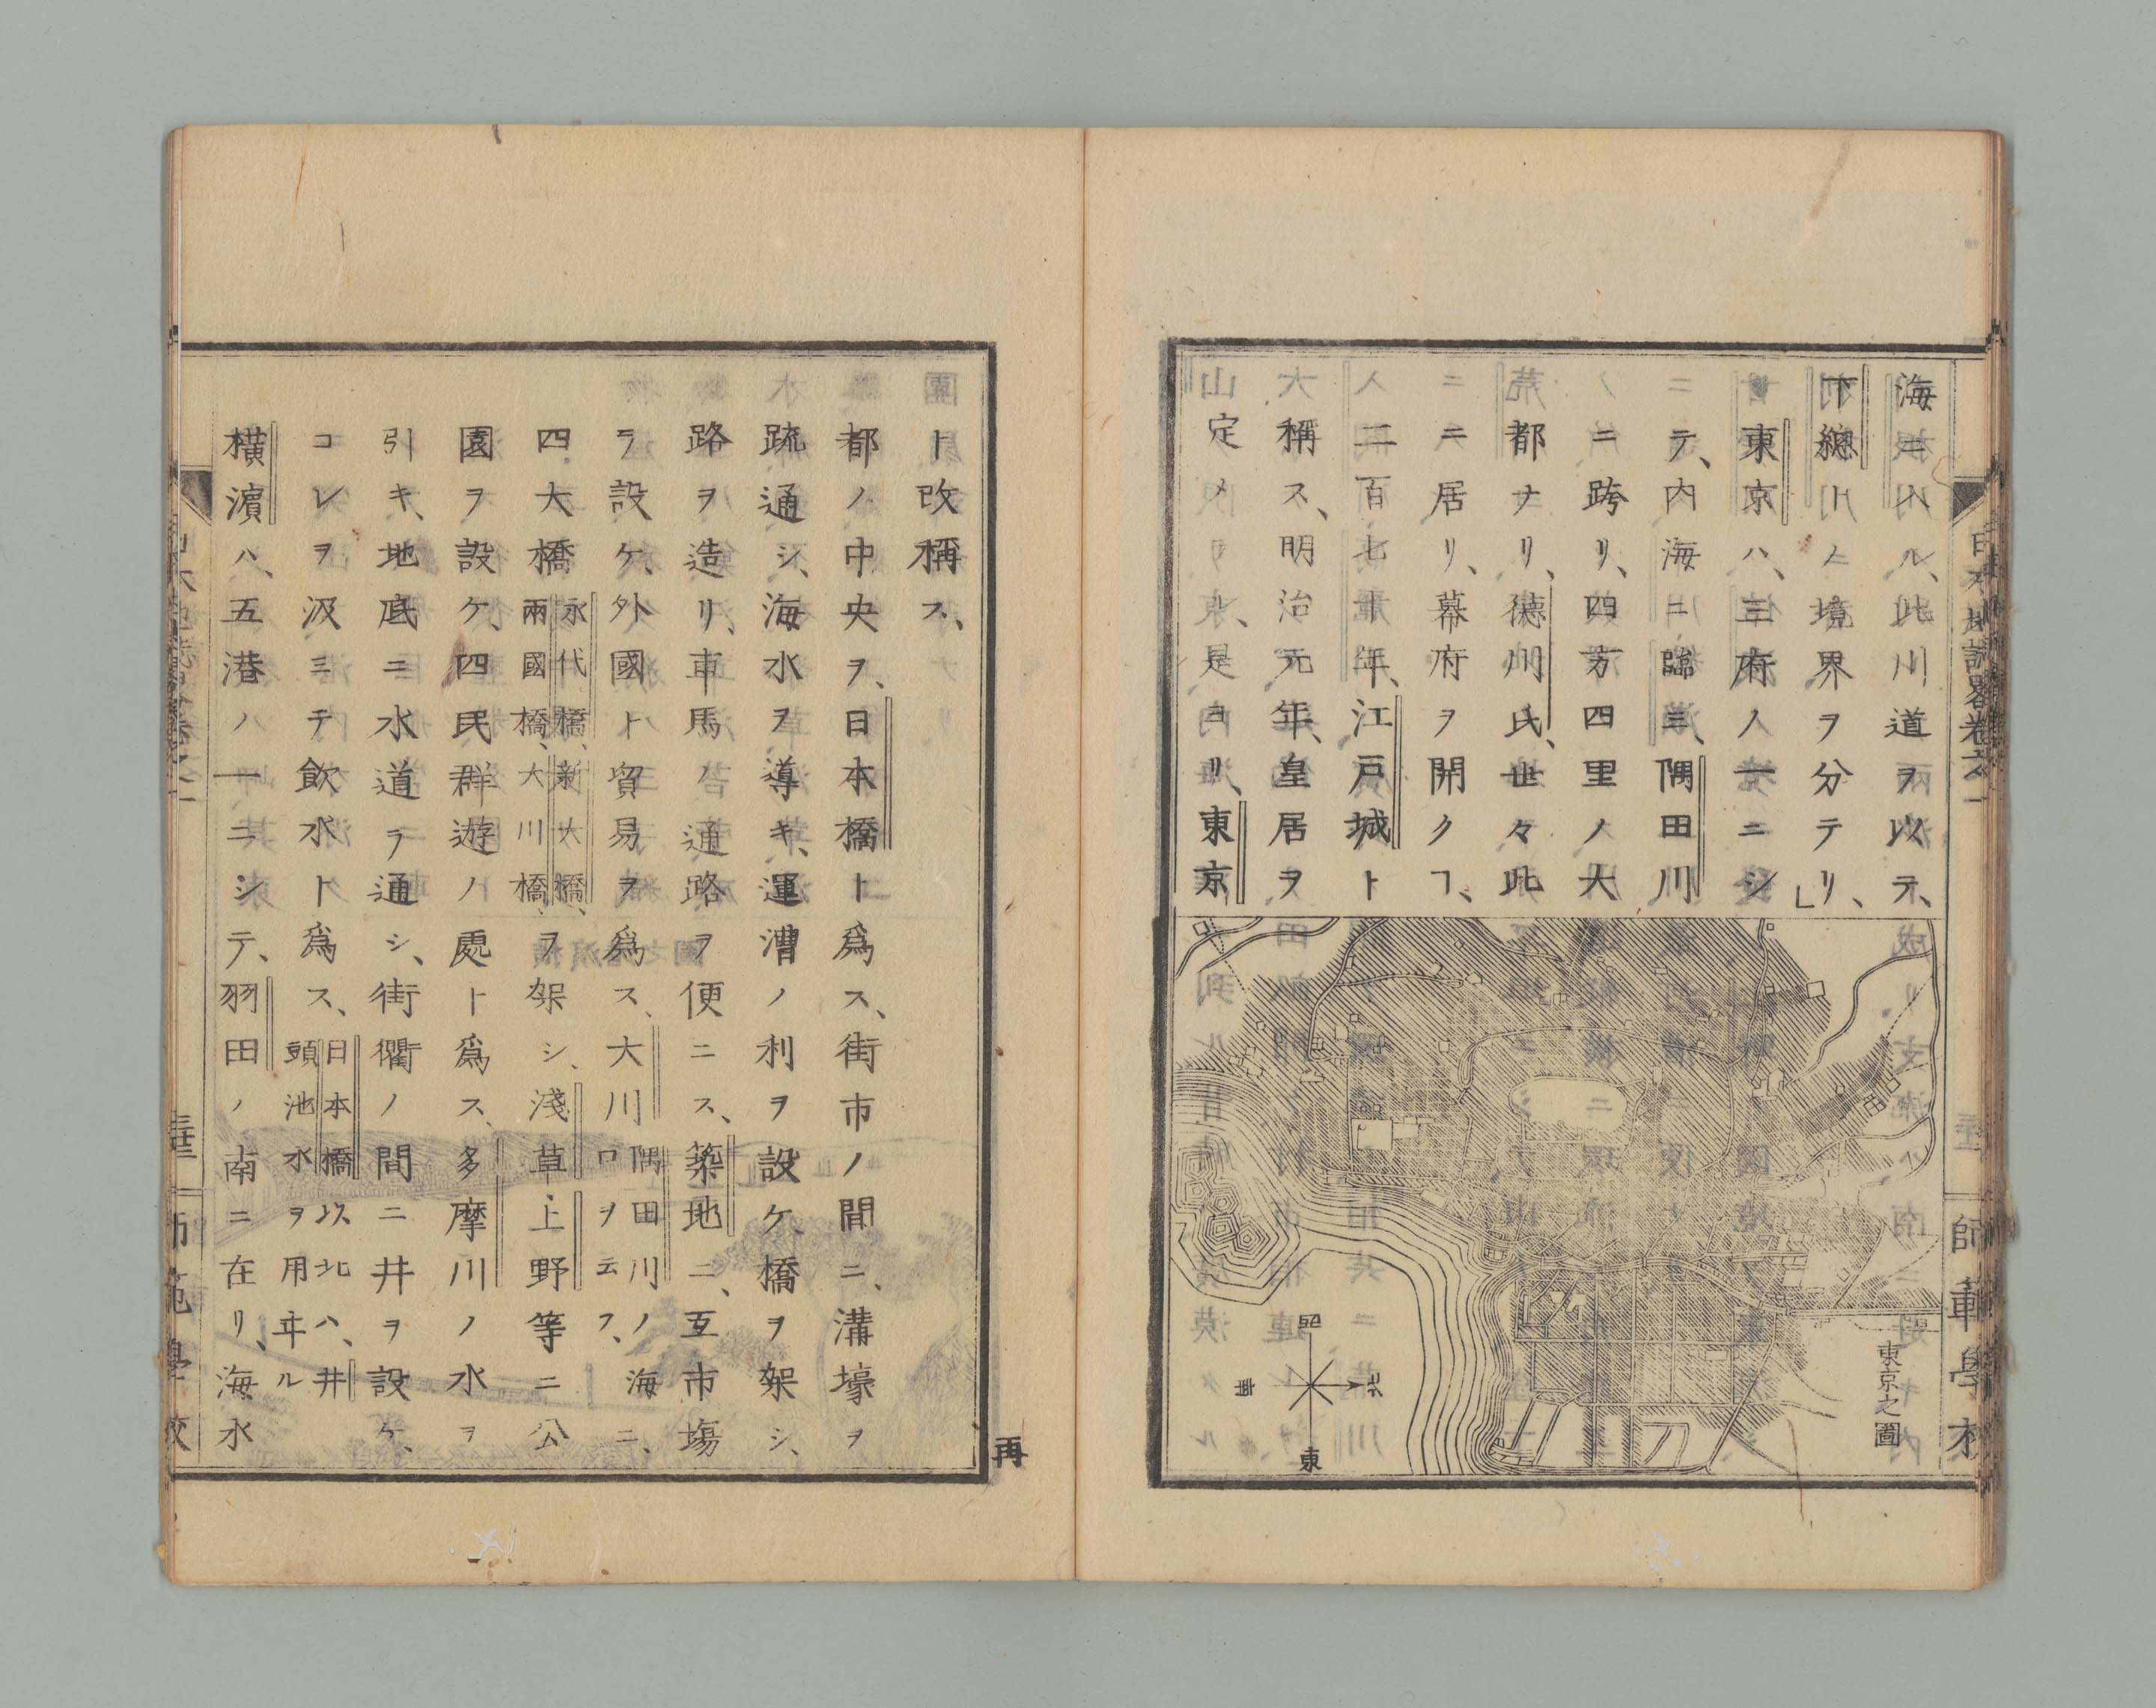 海ニ入ル、此川道ヲ以テ、
下總トノ境界ヲ分テリ、」
東京ハ、三府ノ一ニシ
テ、内海ニ臨ミ、隅田川
ニ跨リ、四方四里ノ大
都ナリ、德川氏、世々此
ニ居リ、幕府ヲ開クヿ、
二百七十年、江戸城ト
稱ス、明治元年、皇居ヲ
定メリ、是ヨリ、東京
東京之圖
西
南
北
東
日本地誌畧卷之一
師範學校
ト改稱ス、
都ノ中央ヲ、日本橋ト爲ス、街市ノ間ニ、溝壕ヲ
疏通シ、海水ヲ導キ、運漕ノ利ヲ設ケ、橋ヲ架シ、
路ヲ造リ、車馬ノ通路ヲ便ニス、築地ニ、互市塲
ヲ設ケ、外國ト貿易ヲ爲ス、大川隅田川ノ海口ヲ云フ、ニ、
四大橋永代橋、新大橋、兩國橋、大川橋、ヲ架シ、淺草上野等ニ公
園ヲ設ケ、四民群遊ノ處ト爲ス、多摩川ノ水ヲ
引キ、地底ニ水道ヲ通シ、街衢ノ間ニ井ヲ設ケ、
コレヲ汲ミテ飮水ト爲ス、日本橋以北ハ、井頭池水ヲ用ヰル
橫濱ハ、五港ノ一ニシテ、羽田ノ南ニ在リ、海水
再
師範學校